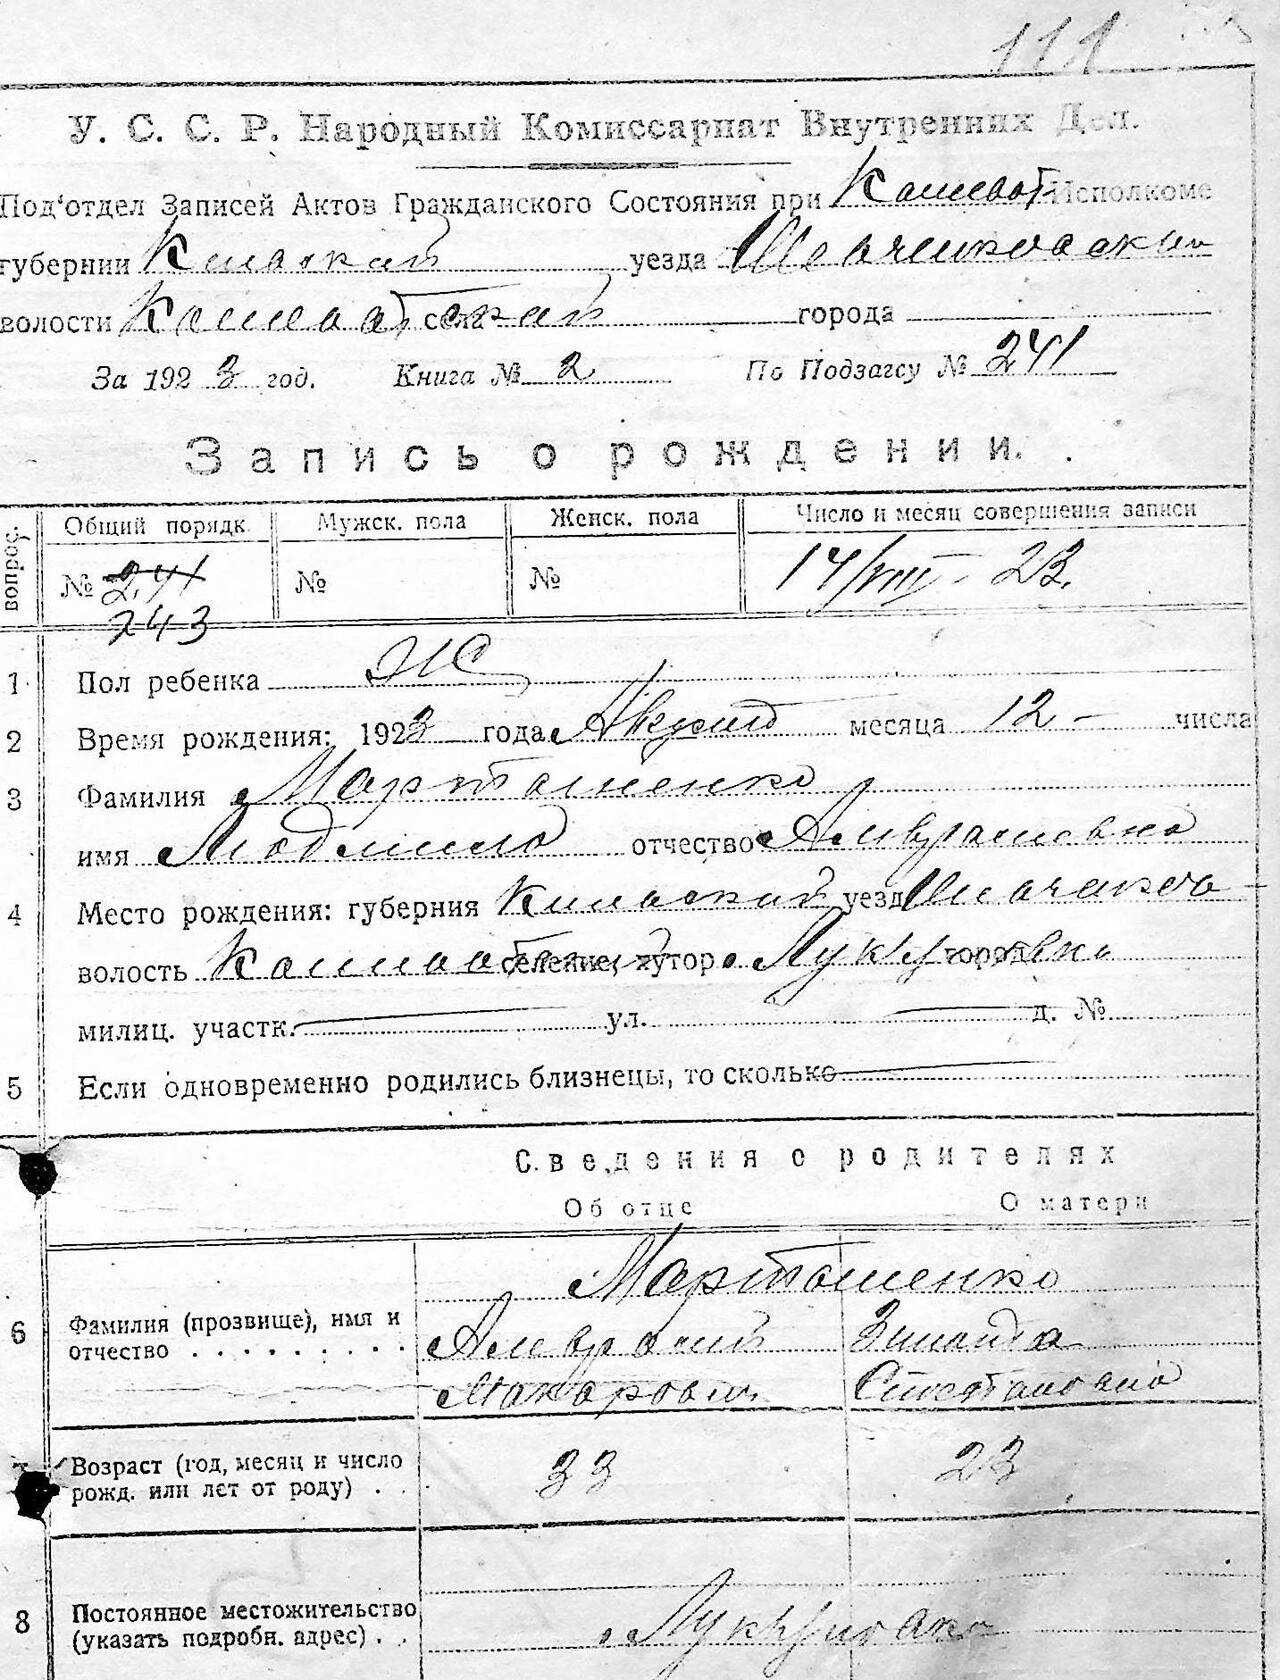 111
У. С. С. Р. Народный Комиссариат Внутренних Дел.
Под'отдел Записей Актов Гражданского Состояния при Кашеват Исполкоме
губернии Киевской уезда
волости Кашеватской села города
За 1923 год. Книга № 2 По Подзагсу № 241
Запись о рождении.
вопрос. Общий порядк. Мужск. пола Женск. пола Число и месяц совершения записи
№ 241 № № 14/VIII- 23.
243
1 Пол ребенка Ж
2 Время рождения: 1923 года месяца 12 числа
3 Фамилия Марташенко
имя Людмила отчество Амвросиевна
4 Место рождения: губерния Киевской уезд
волость Кашеватской селение, хутор город
милиц. участк. ул. д. №
5 Если одновременно родились близнецы, то сколько
Сведения о родителях
Об отце О матери
Марташенко
6 Фамилия (прозвище), имя и отчество Амвросий Зинаида
Макарович Степановна
7 Возраст (год, месяц и число рожд. или лет от роду) 33 23
8 Постоянное местожительство (указать подробн. адрес)